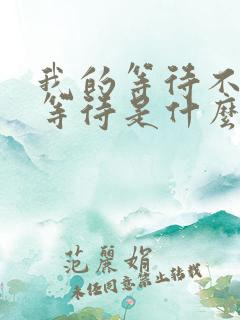 我的等待不
等待是什麼
范麗娟
未经同意禁止转载